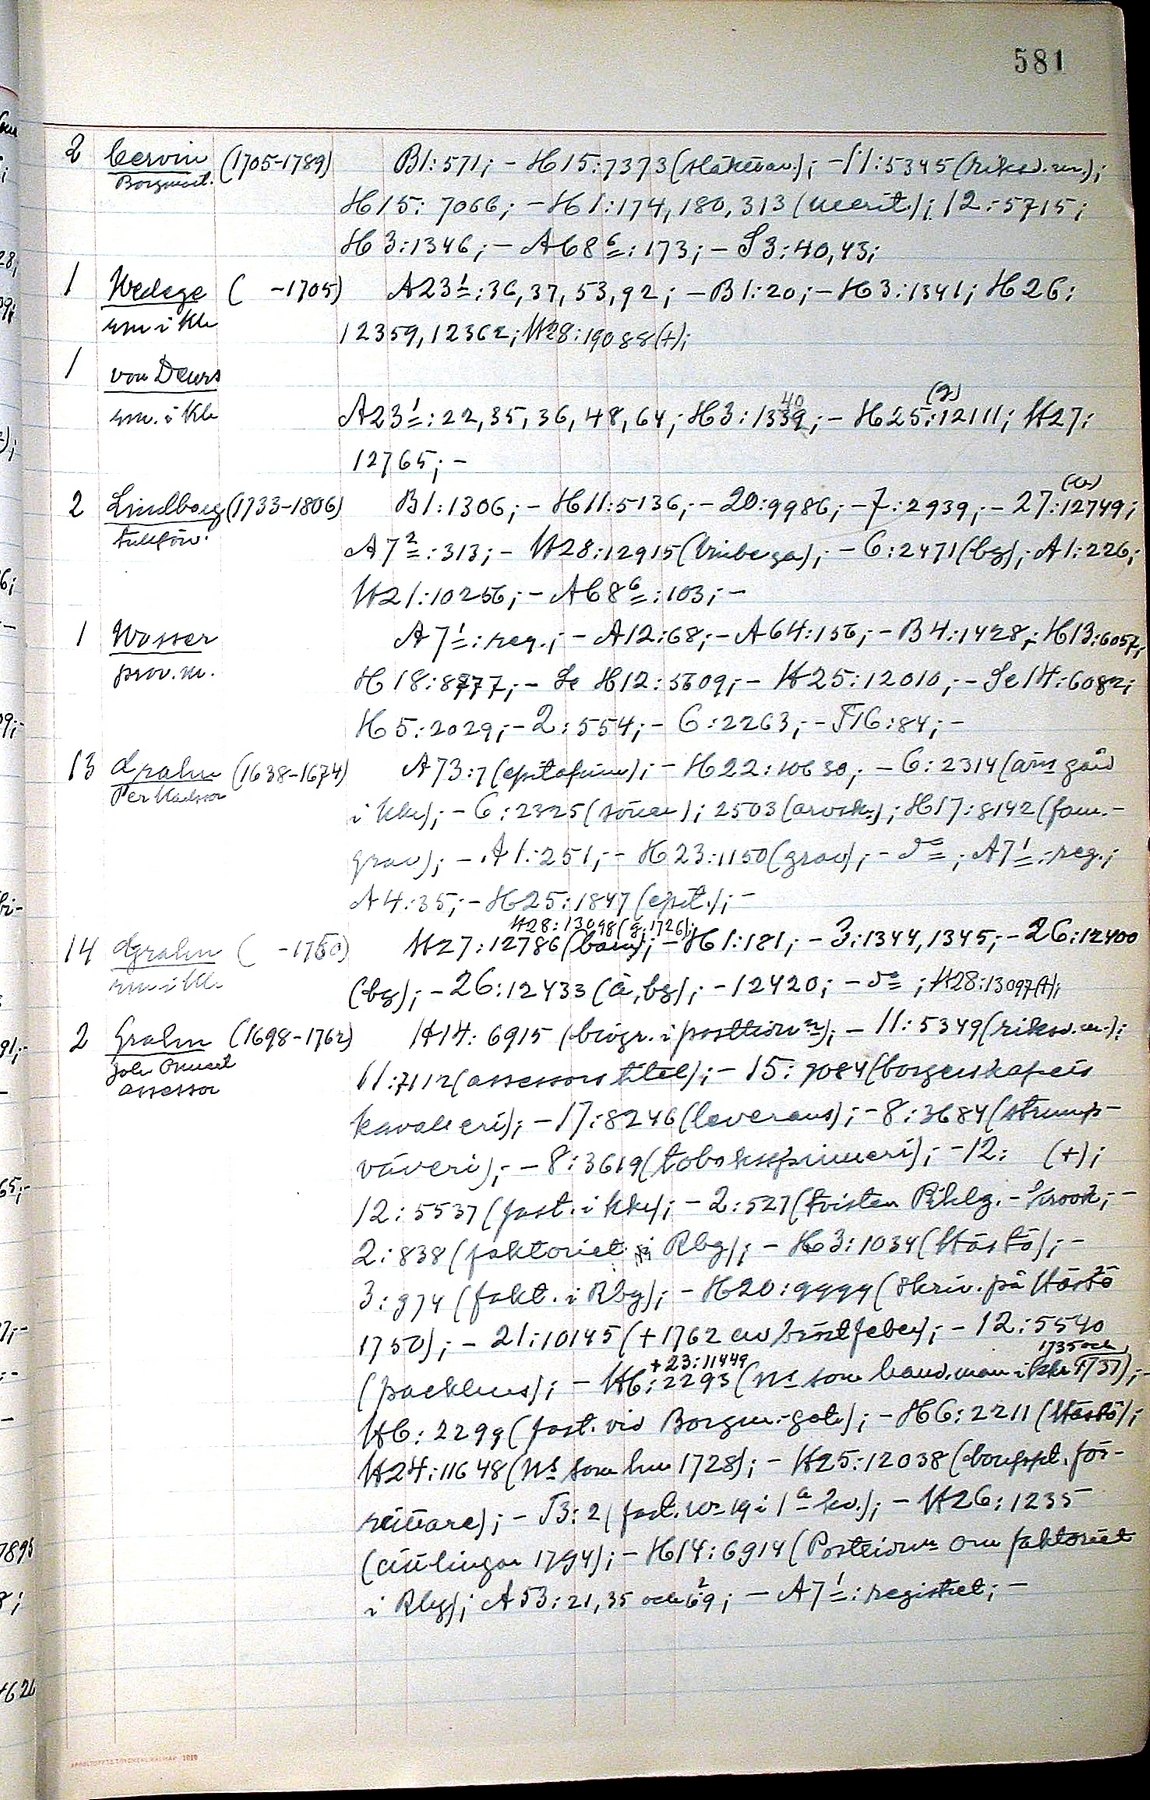 581
2 Cervin (1705-1789) B1:571; - H15:7373 (släktav.); - 11:5345 (riksd.m.);
Borgmäst.
H15: 7066; - H1:174, 180, 313 (merit.); 12:5715;
H3:1346; - A68 6: 173; - S3:40,43;
1 Wedege ( -1705) A23 1: 36, 37, 53, 92; - B1:20; - H3:1341; H26:
rm i Kla 12359, 12362; H28:19088 (+);
1 von Deurs
rm. i Kla A23 1: 22, 35, 36, 48, 64; H3:1339; - H25:12111; H27:
40 (g)
12765; -
2 Lindborg (1733-1806) B1:1306; - H11:5136; - 20:9986; - 7:2939; - 27:12749;
A7 2: 313; - H28:12915 ; - 6:2471 (bg); A1:226;
H21:10256; - A68 6: 103; -
1 Wosser A7 1: reg.; - A12:68; - A64:156; - B4:1428; H13:6057;
prov.m. H18:8777; - Se H12:5609; - H25:12010; - Se 14:6082;
H5:2029; - 2:554; - 6:2263; - F16:84; -
13 Grahn (1638-1674) A73:7 (epitafium); - H22:10630; - 6:2314 gård
i Kla); - 6:2325 (sönen); 2503 ; H17:8142 (fam.-
grav); - A1:251; - H23:1150 (grav); - ; A7 1: reg.;
A4:35; - H25:1847 (epit.); -
H28:13098 (g. 1726);
14 Grahn ( -1750) H27:12786 (barn); - H1:181; - 3:1344, 1345; - 26:12400
rm i Kla (bg); - 26:12433 (å, bg); - 12420; - ; H28:13097 (+);
2 Grahn (1698-1762) H14:6915 (biogr. i posttidn.); - 11:5349 (riksd.m.);
assessor 11:7112 (assessors titel); - 15:7084 (borgerskapets
kavalleri); - 17:8246 (leverans); - 8:3684 (strump-
väveri); - 8:3619 (tobaksspinneri); - 12: (+);
12:5537 (fast. i Kla); - 2:527 (tvisten - Krook; -
2:838 (faktoriet i Rbg); - H3:1034 (Hästö); -
3:974 (fakt. i Rbg); - H20:9999 (skriv. på Hästö
1750); - 21:10145 (+1762 av bröstfeber); - 12:5540
+ 23:11449 1735 och
(packhus); - H6:2293 (N: som hand.man i Kla 1737); -
H6:2299 (fast. vid Borgm.-gat.); - H6:2211 (Hästö);
H24:11648 (N: som hm 1728); - H25:12038 (bouppt. för-
rättare); - F3:2 (fast. n:o 19 i 1:a kv.); - H26:1235
(ättlingar 1794); - H14:6914 (Posttidn. om faktoriet
i Rbg); A53:21, 35 och 69; - A7 1: registret; -